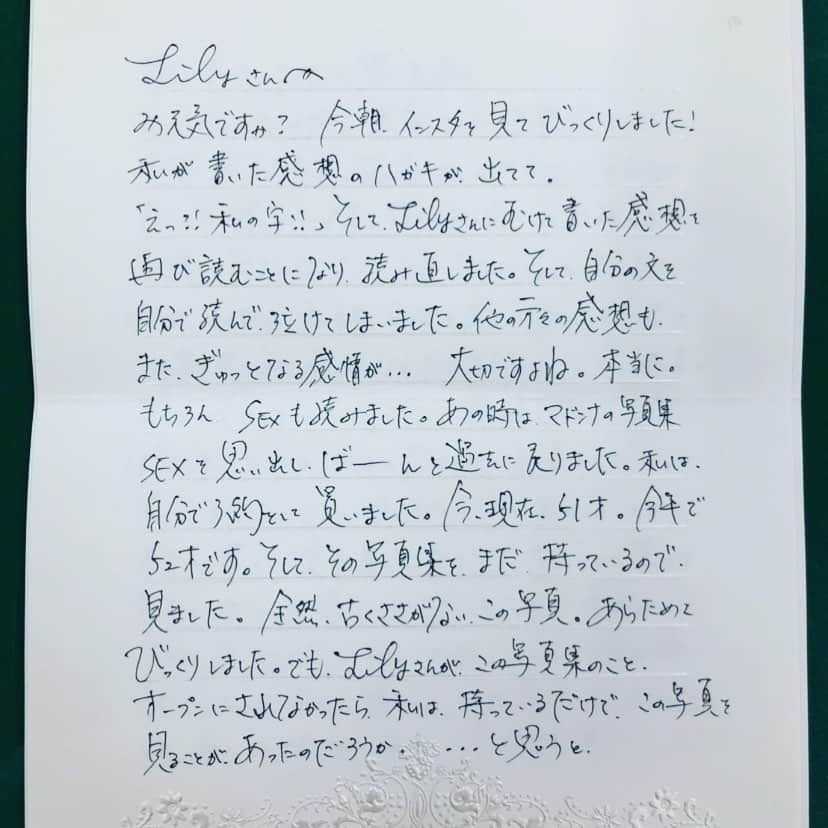 Lilyさんへ
お元気ですか？ 今朝、インスタを見てびっくりしました！
私が書いた感想のハガキが、出てて。
「えっ？！私の字！！」そして、Lilyさんにむけて書いた感想を
再び読むことになり、読み直しました。そして、自分の文を
自分で読んで、泣けてしまいました。他の方々の感想も、
また、ぎゅっとなる感情が… 大切ですよね。本当に。
もちろん、SEXも読みました。あの時は、マドンナの写真集
SEXを思い出し、ばーんと過去に戻りました。私は、
自分で予約して買いました。今、現在、51才。今年で
52才です。そして、その写真集を、まだ、持っているので、
見ました。全然、古くささがない、この写真。あらためて
びっくりしました。でも、Lilyさんが、この写真集のこと、
オープンにされてなかったら、私は、持っているだけで、この写真を
見ることが、あったのだろうか、…と思うと、